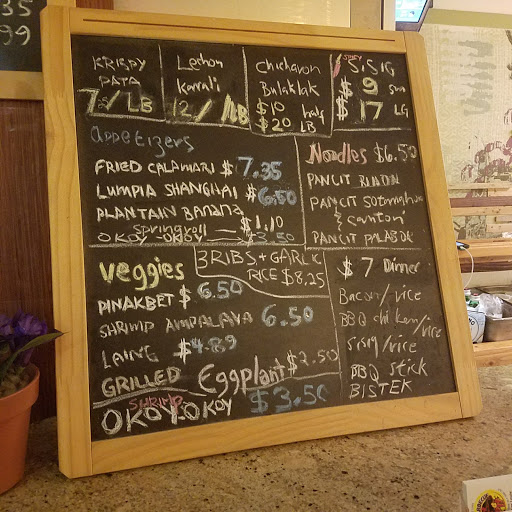 35
99
KRISPY
PATA
7/LB
Lechon
Kawali
12/LB
Chicharon
Bulaklak
$10 half
$20 LB
SPICY
SiSiG
$9 sm
$17 LG
appetizers
FRIED CALAMARI $7.35
LUMPIA SHANGHAI $6.50
PLANTAIN BANANA
Springroll $1.10
OKOY - OKOY
Noodles $6.50
PANCIT BIHON
PANCIT SOTANGHON
& Canton
PANCIT PALABOK
veggies
3 RIBS + GARLIC
RICE $8.25
PINAKBET $6.50
SHRIMP AMPALAYA 6.50
LAING $4.89
GRILLED Eggplant $2.50
SHRIMP
OKOY-OKOY $3.50
$7 Dinner
Bacon/rice
BBQ chicken/rice
Sisig/rice
BBQ STICK
BISTEK